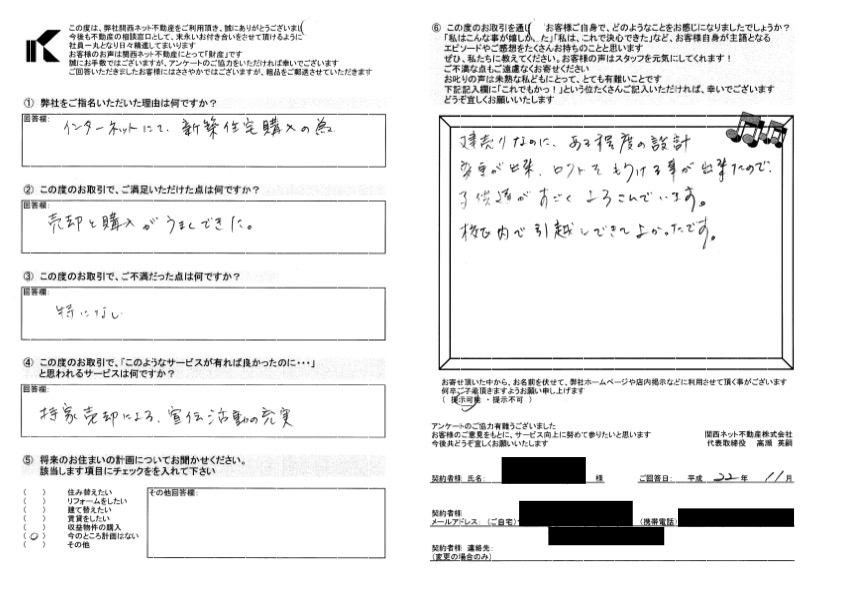 この度は、弊社関西ネット不動産をご利用頂き、誠にありがとうございま
今後も不動産の相談窓口として、末永いお付き合いをさせて頂けるように
社員一丸となり日々精進してまいります
お客様のお声は関西ネット不動産にとって「財産」です
誠にお手数ではございますが、アンケートのご協力をいただければ幸いでございます
ご回答いただきましたお客様にはささやかではございますが、粗品をご郵送させていただきます
① 弊社をご指名いただいた理由は何ですか？
回答欄:
インターネットにて、新築住宅購入の為
② この度のお取引で、ご満足いただけた点は何ですか？
回答欄:
売却と購入がうまくできた。
③ この度のお取引で、ご不満だった点は何ですか？
回答欄:
特になし
④ この度のお取引で、「このようなサービスが有れば良かったのに・・・」
と思われるサービスは何ですか？
回答欄:
持家売却による、宣伝活動の充実
⑤ 将来のお住まいの計画についてお聞かせください。
該当します項目にチェックをを入れて下さい
( ) 住み替えたい
( ) リフォームをしたい
( ) 建て替えたい
( ) 賃貸をしたい
( ) 収益物件の購入
(○) 今のところ計画はない
( ) その他
その他回答欄:
⑥ この度のお取引を通し お客様ご自身で、どのようなことをお感じになりましたでしょうか？
「私はこんな事が嬉しか、た」「私は、これで決心できた」など、お客様自身が主語となる
エピソードやご感想をたくさんお持ちのことと思います
ぜひ、私たちに教えてください。お客様の声はスタッフを元気にしてくれます！
ご不満な点もご遠慮なくお寄せください
お叱りの声は未熟な私どもにとって、とても有難いことです
下記記入欄に「これでもかっ！」という位たくさんご記入いただければ、幸いでございます
どうぞ宜しくお願いいたします
建売りなのに、ある程度の設計
変更が出来、ロフトをもうける事が出来たので、
子供達がすごくよろこんでいます。
校区内で引越しできてよかったです。
お寄せ頂いた中から、お名前を伏せて、弊社ホームページや店内掲示などに利用させて頂く事がございます
何卒ご了承頂きますようお願い申し上げます
( 提示可能 ・ 提示不可 )
アンケートのご協力有難うございました
お客様のご意見をもとに、サービス向上に努めて参りたいと思います
今後共どうぞ宜しくお願いいたします
関西ネット不動産株式会社
代表取締役 高瀬 英嗣
契約者様 氏名: 様 ご回答日: 平成 22 年 11 月
契約者様
メールアドレス: (ご自宅) (携帯電話)
契約者様 連絡先:
(変更の場合のみ)